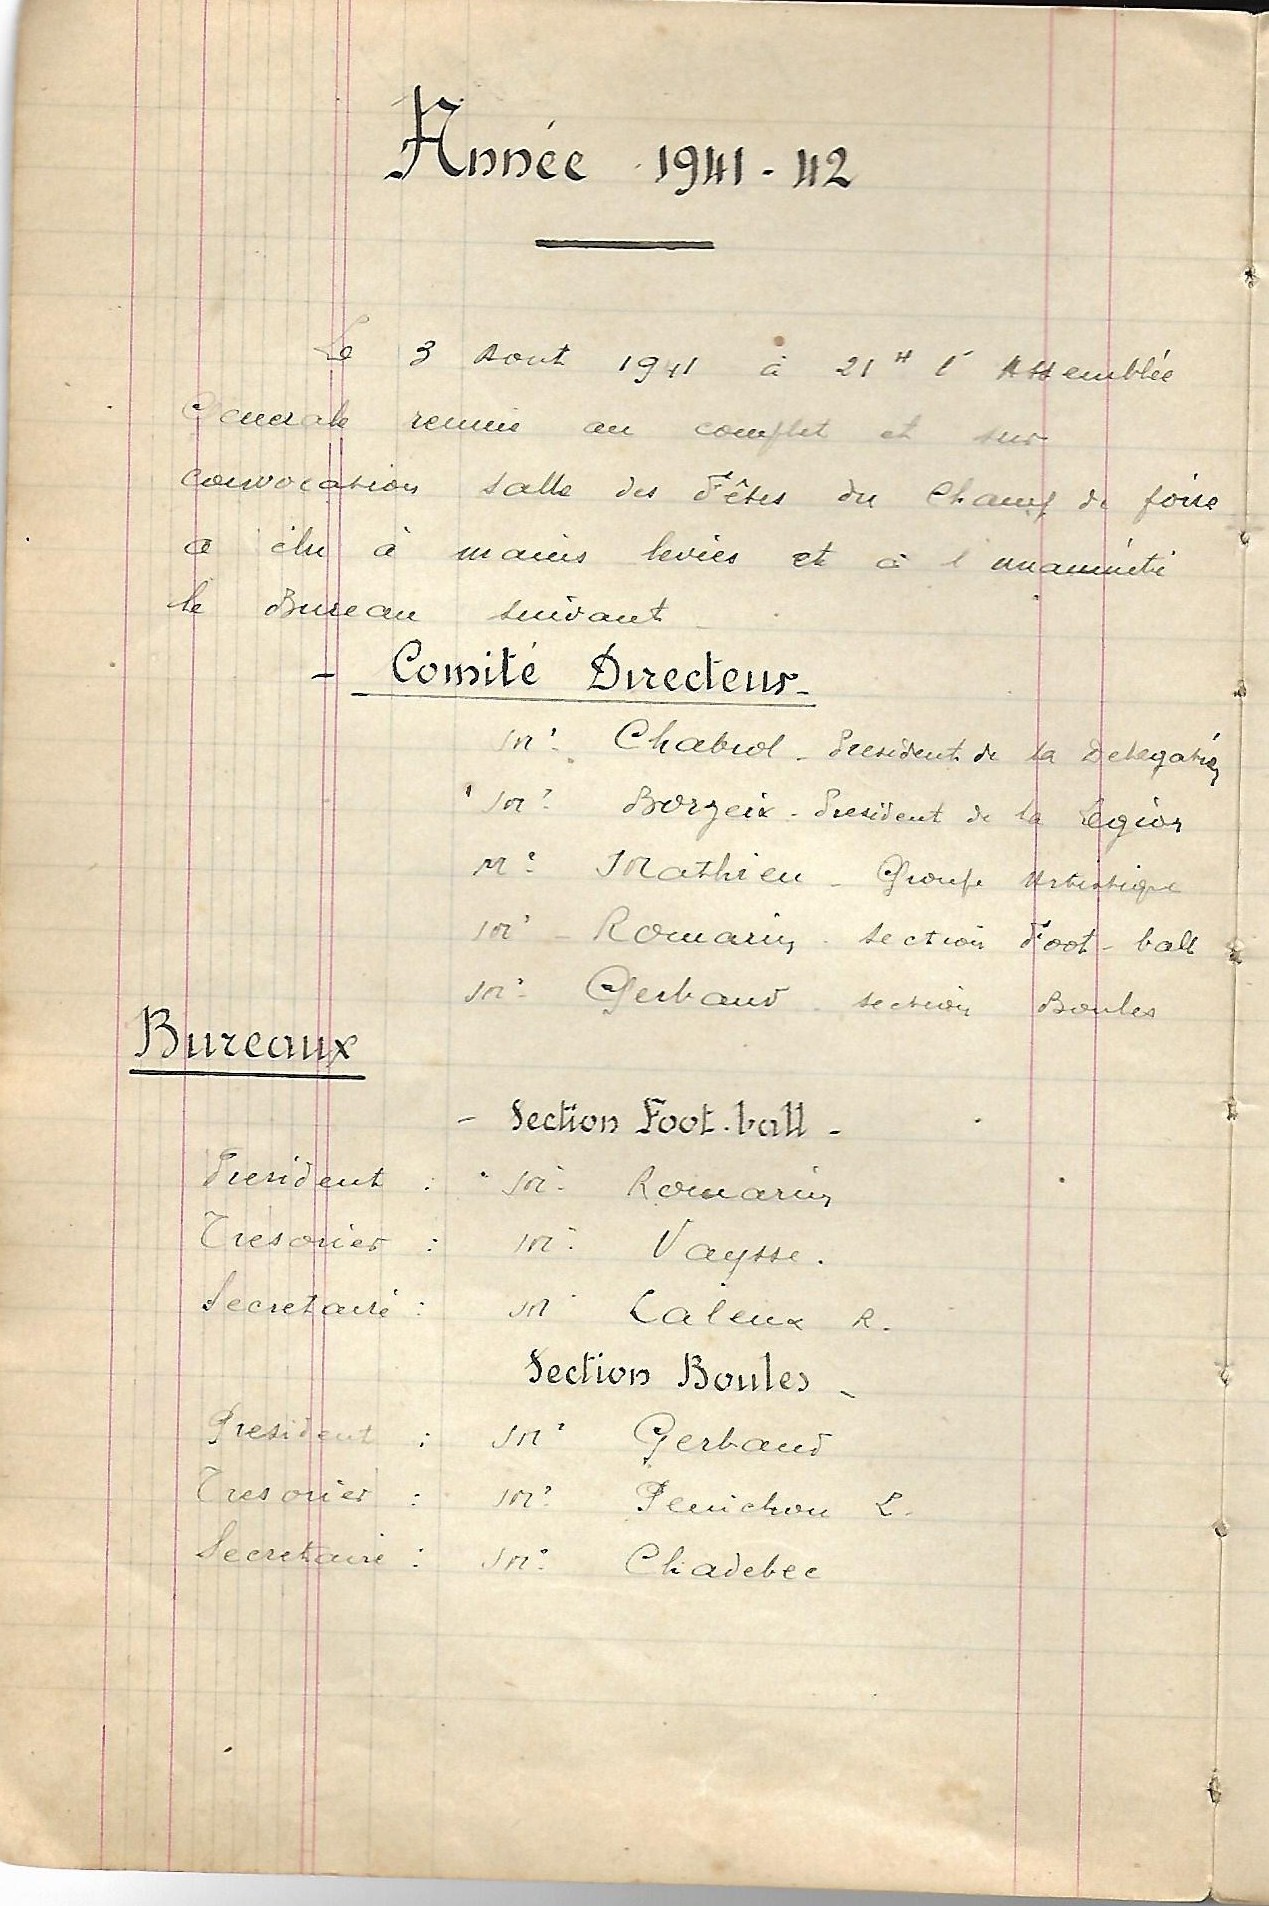 Année 1941-42
Le 3 Aout 1941 à 21H l'Assemblée
Generale reunie au complet et sur
convocation salle des Fêtes du Champ de foire
a élu à mains levées et à l'unanimité
le Bureau suivant
- Comité Directeur -
Mr. Chabrol - President de la Delegation
Mr. Borzeix - President de la Legion
Mr. Mathieu - Groupe Artistique
Mr - Romarin - section Foot-ball
Mr. Gerbaud - section Boules
Bureaux
- Section Foot-ball -
President : Mr. Romarin
Tresorier : Mr. Vaysse.
Secretaire : Mr Caleux R.
Section Boules -
President : Mr Gerbaud
Tresorier : Mr. Penichou L.
Secretaire : Mr. Chadebec